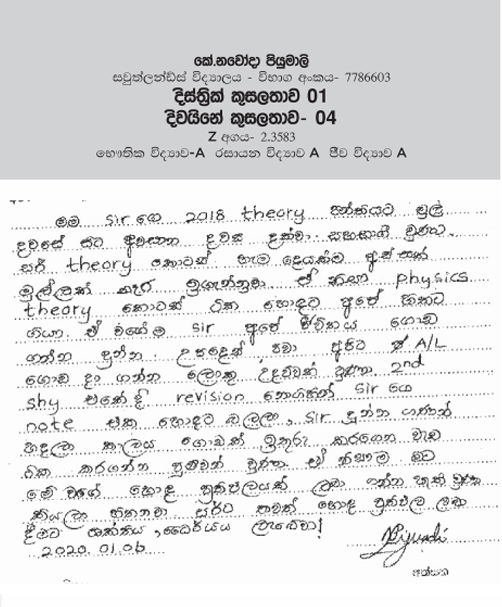 කේ.නවෝදා පියුමාලි
සවුත්ලන්ඩ්ස් විද්‍යාලය - විභාග අංකය- 7786603
දිස්ත්‍රික් කුසලතාව 01
දිවයිනේ කුසලතාව- 04
Z අගය- 2.3583
භෞතික විද්‍යාව-A රසායන විද්‍යාව A ජීව විද්‍යාව A
මම sir ගෙ 2018 theory පන්තියට මුල්
දවසේ සිට අවසාන දවස දක්වා සහභාගී වුණා.
සර් theory කොටස් හැම දෙයක්ම
මුල්ලක් ඉගැන්නුවා ඒ නිසා physics
theory කොටස් ටික හොඳට අපේ හිතට
ගියා. ඒ වගේම sir අපේ ජීවිතය ගොඩ
ගන්න දුන්න උපදෙස් අපිට A/L
ගොඩ දා ගන්න ලොකු උදව්වක් වුණා. 2nd
shy එකේ දී revision sir ගෙ
note එක හොඳට බලලා, sir දුන්න ගණන්
හදලා කාලය ගොඩක් ඉතුරු කරගෙන වැඩ
ටික කරගන්න පුළුවන් වුණා. ඒ නිසාම මට
මේ වගේ හොඳ ප්‍රතිඵලයක් ලබා ගන්න හැකි වුණා
කියලා හිතනවා සර්ට තවත් හොඳ ප්‍රතිඵල ලබා
දීමට ශක්තිය, ධෛර්යය ලැබේවා!
2020.01.06
අත්සන